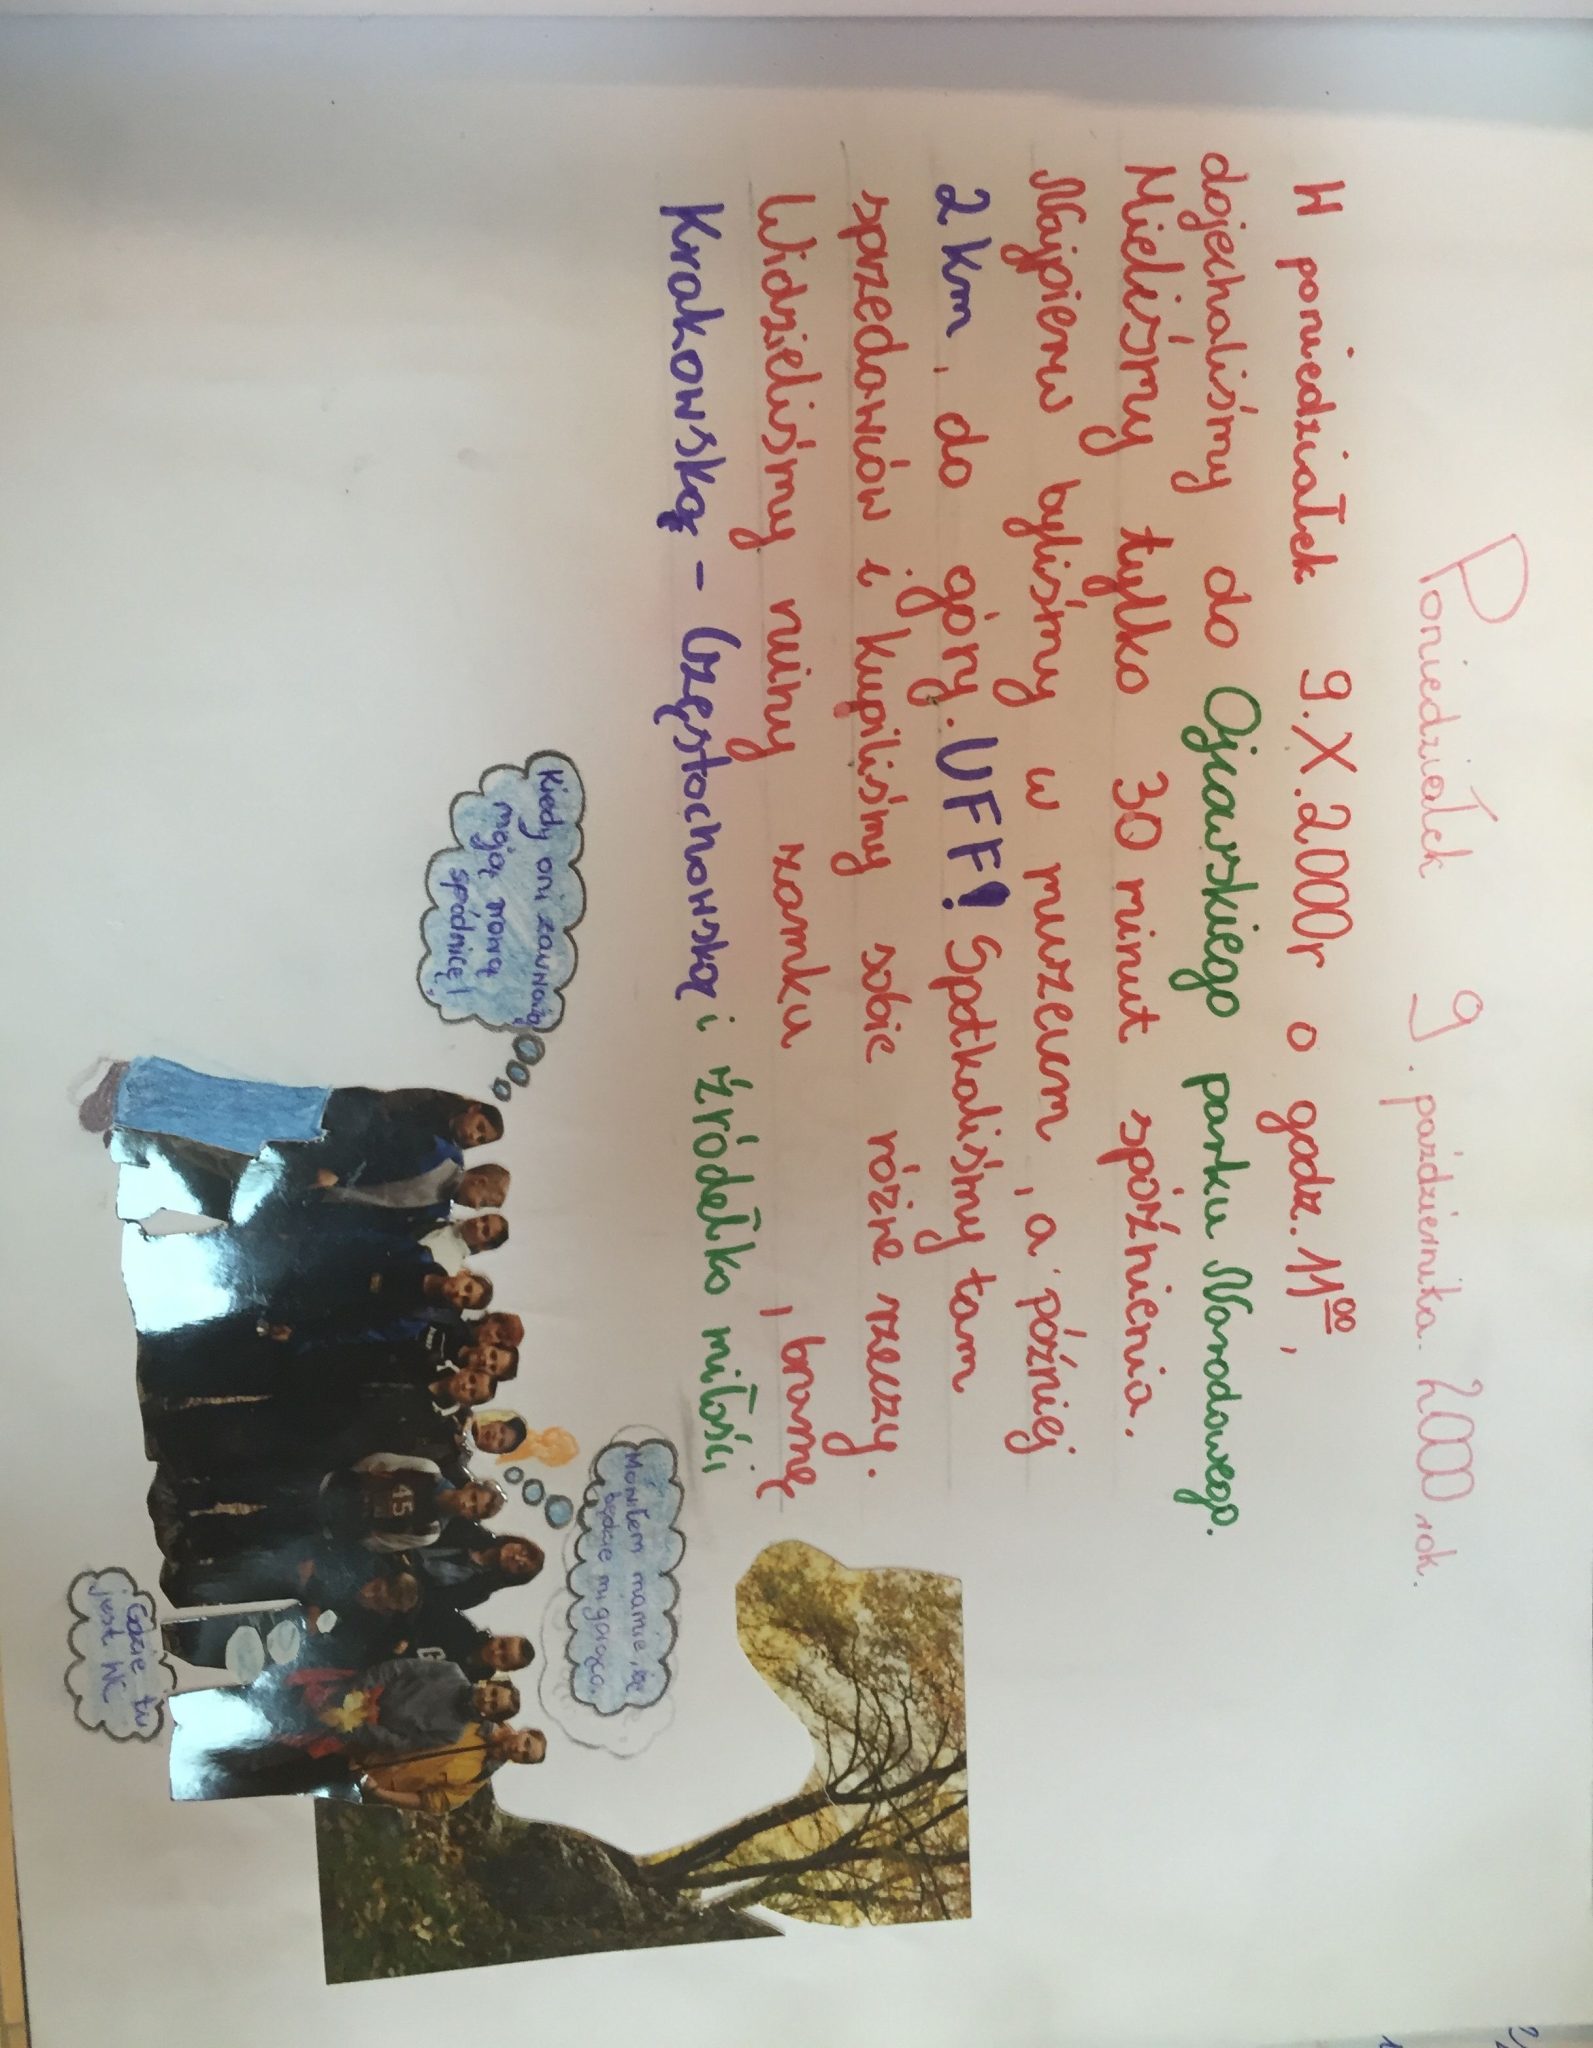 Poniedziałek 9. października. 2000 rok.
W poniedziałek 9.X.2000r o godz. 11⁰⁰,
dojechaliśmy do Ojcawskiego parku Narodowego.
Mieliśmy tylko 30 minut spóźnienia.
Najpierw byliśmy w muzeum, a później
2 km, do góry. UFF! Spotkaliśmy tam
sprzedawców i kupiliśmy sobie różne rzeczy.
Widzieliśmy ruiny zamku, bramę
Krakowską - Częstochowską i źródełko miłości
Kiedy oni zauważą
moją nową
spódnicę!
Mówiłem mamie, że
będzie mi gorąco.
Gdzie tu
jest WC
45